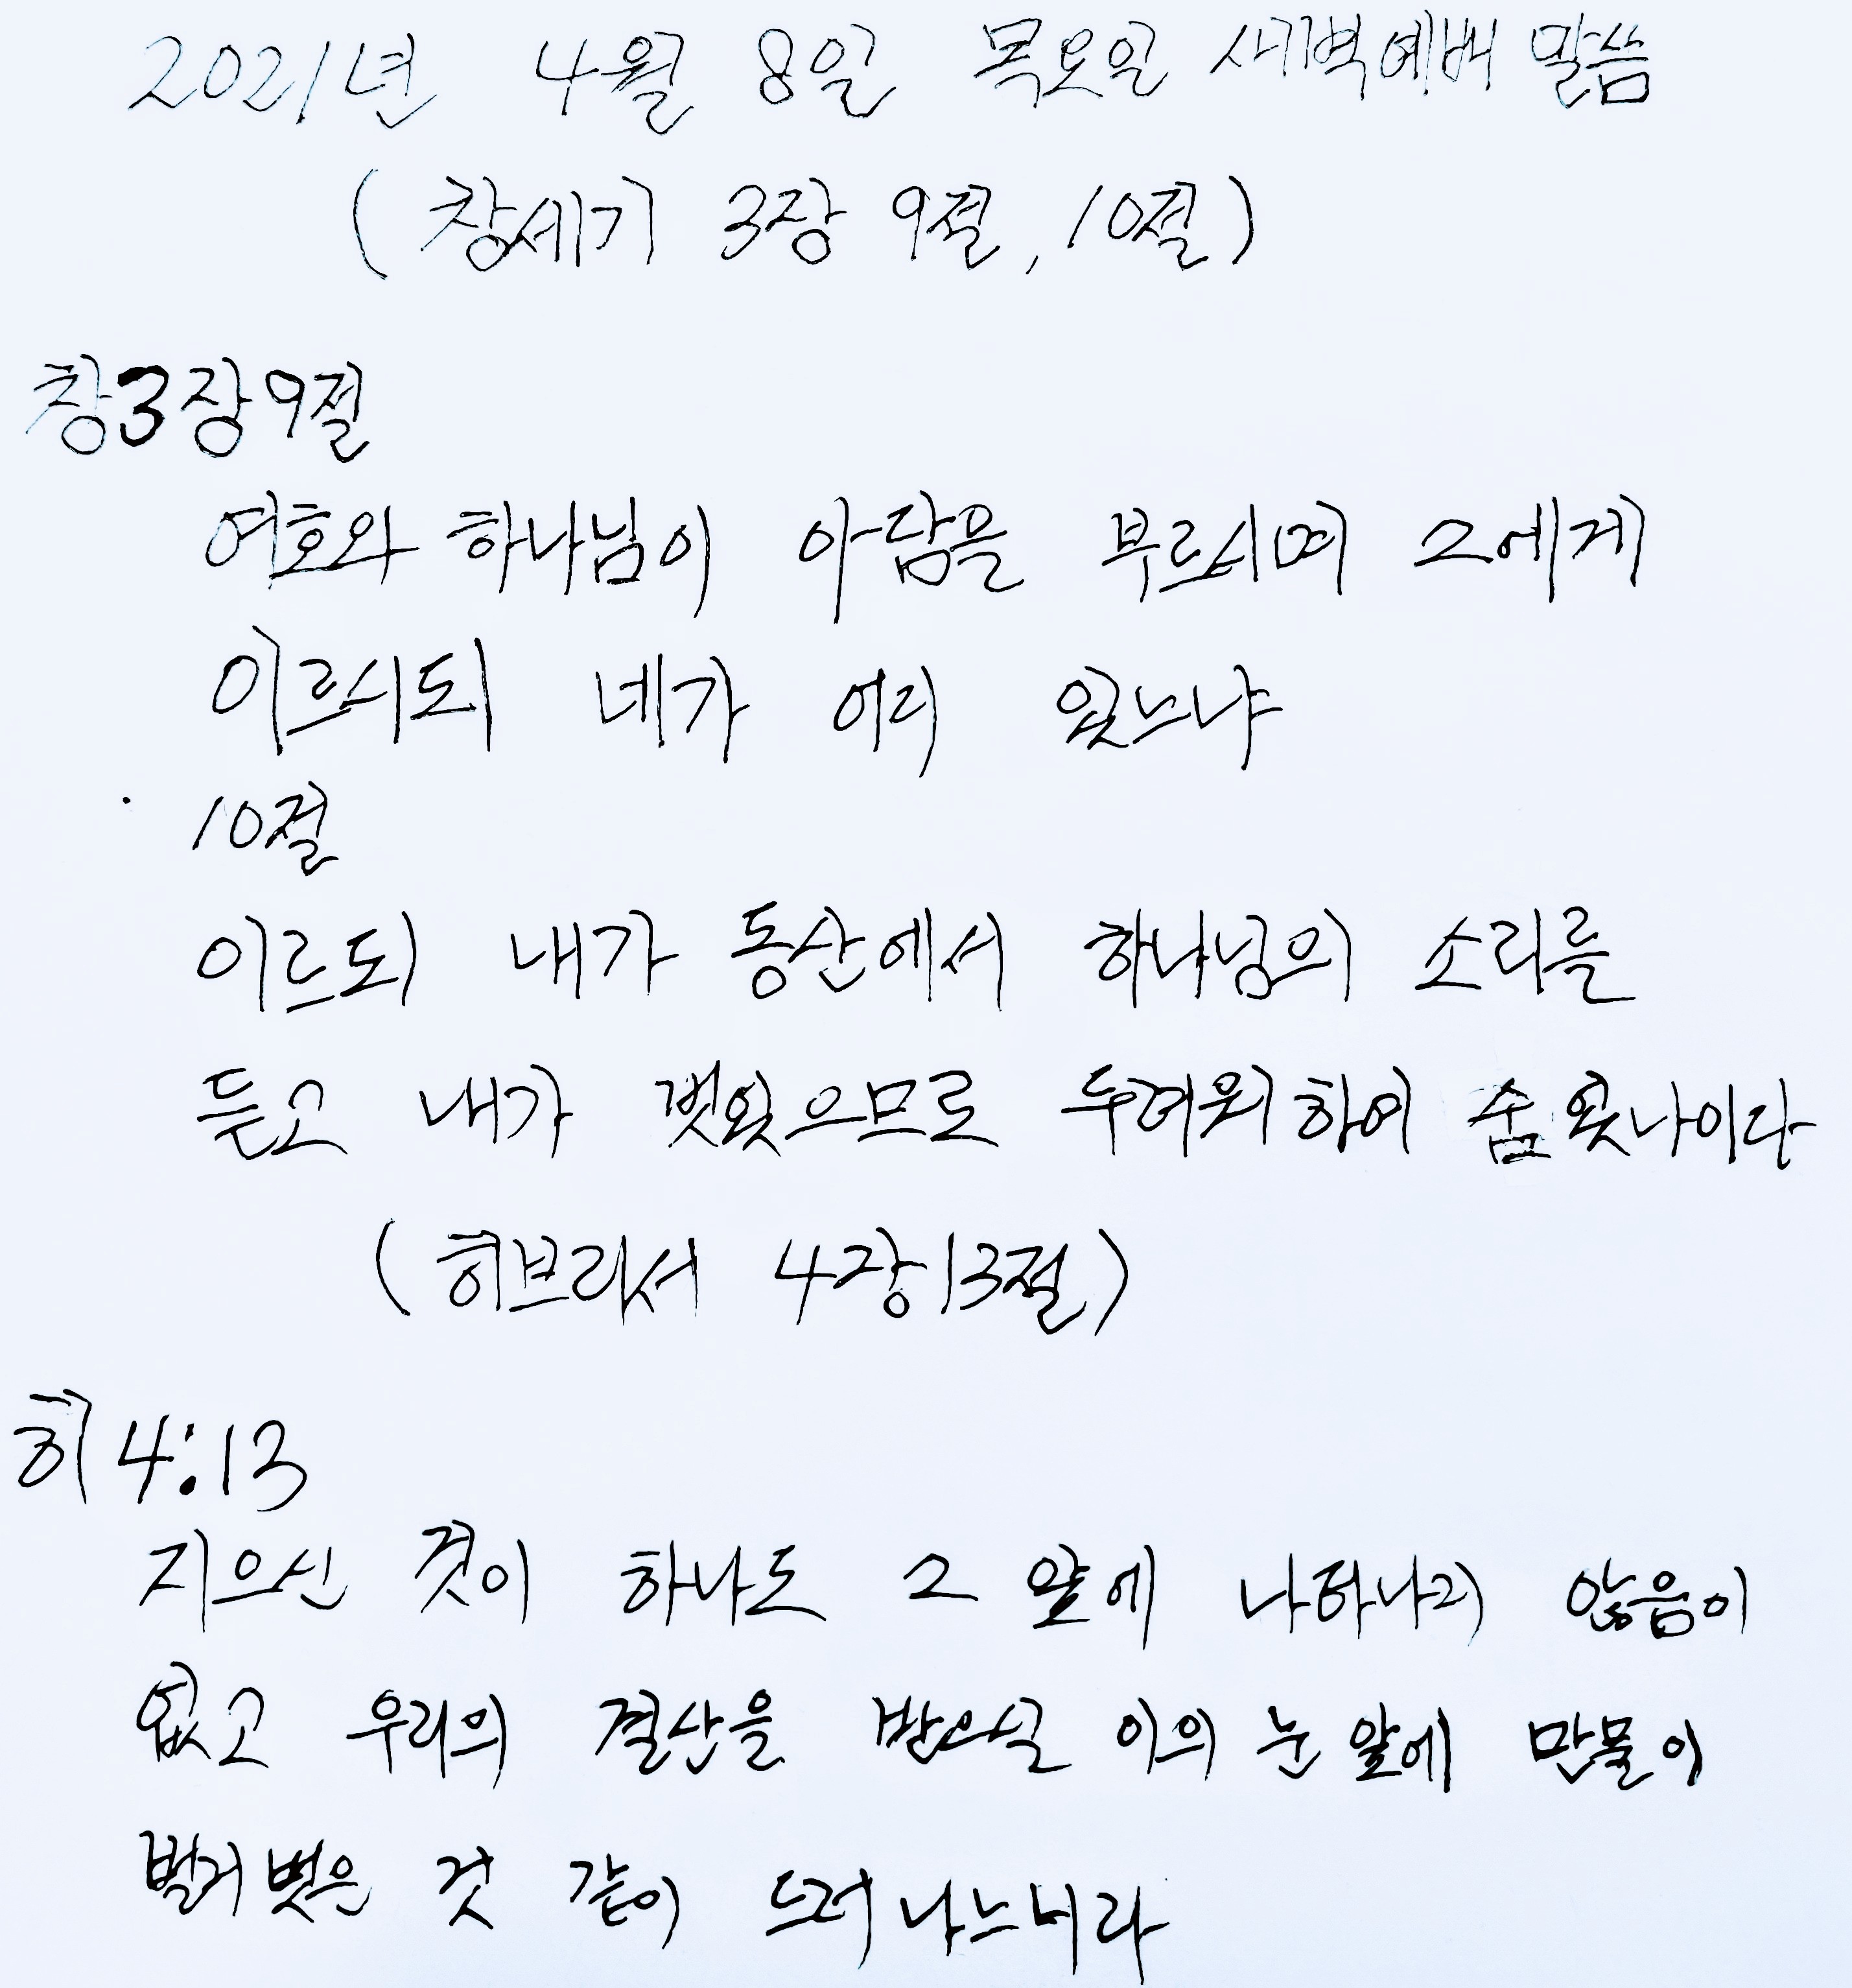 2021년 4월 8일 목요일 새벽예배 말씀
( 창세기 3장 9절, 10절 )
창3장9절
여호와 하나님이 아담을 부르시며 그에게
이르시되 네가 어디 있느냐
10절
이르되 내가 동산에서 하나님의 소리를
듣고 내가 벗었으므로 두려워하여 숨었나이다
( 히브리서 4장 13절 )
히 4:13
지으신 것이 하나도 그 앞에 나타나지 않음이
없고 우리의 결산을 받으실 이의 눈 앞에 만물이
벌거벗은 것 같이 드러나느니라